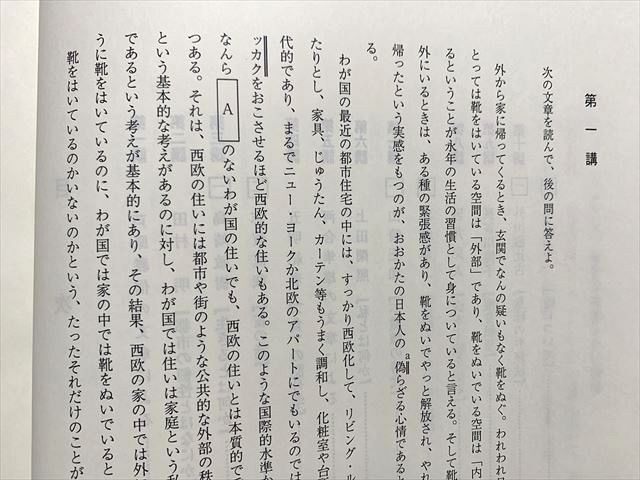 第一講
次の文章を読んで、後の問に答えよ。
外から家に帰ってくるとき、玄関でなんの疑いもなく靴をぬぐ。われわれ日
とっては靴をはいている空間は「外部」であり、靴をぬいでいる空間は「内
るということが永年の生活の習慣として身についていると言える。そして靴
外にいるときは、ある種の緊張感があり、靴をぬいでやっと解放され、やれ
帰ったという実感をもつのが、おおかたの日本人の a偽らざる心情であると
る。
わが国の最近の都市住宅の中には、すっかり西欧化して、リビング・ル
たりとし、家具、じゅうたん、カーテン等もうまく調和し、化粧室や台
代的であり、まるでニュー・ヨークか北欧のアパートにでもいるのでは
ッカクをおこさせるほど西欧的な住いもある。このような国際的水準か
なんら A のないわが国の住いでも、西欧の住いとは本質的で
つある。それは、西欧の住いには都市や街のような公共的な外部の秩
という基本的な考えがあるのに対し、わが国では住いは家庭という私
であるという考えが基本的にあり、その結果、西欧の家の中では外
うに靴をはいているのに、わが国では家の中では靴をぬいでいると
靴をはいているのかいないのかという、たったそれだけのことが